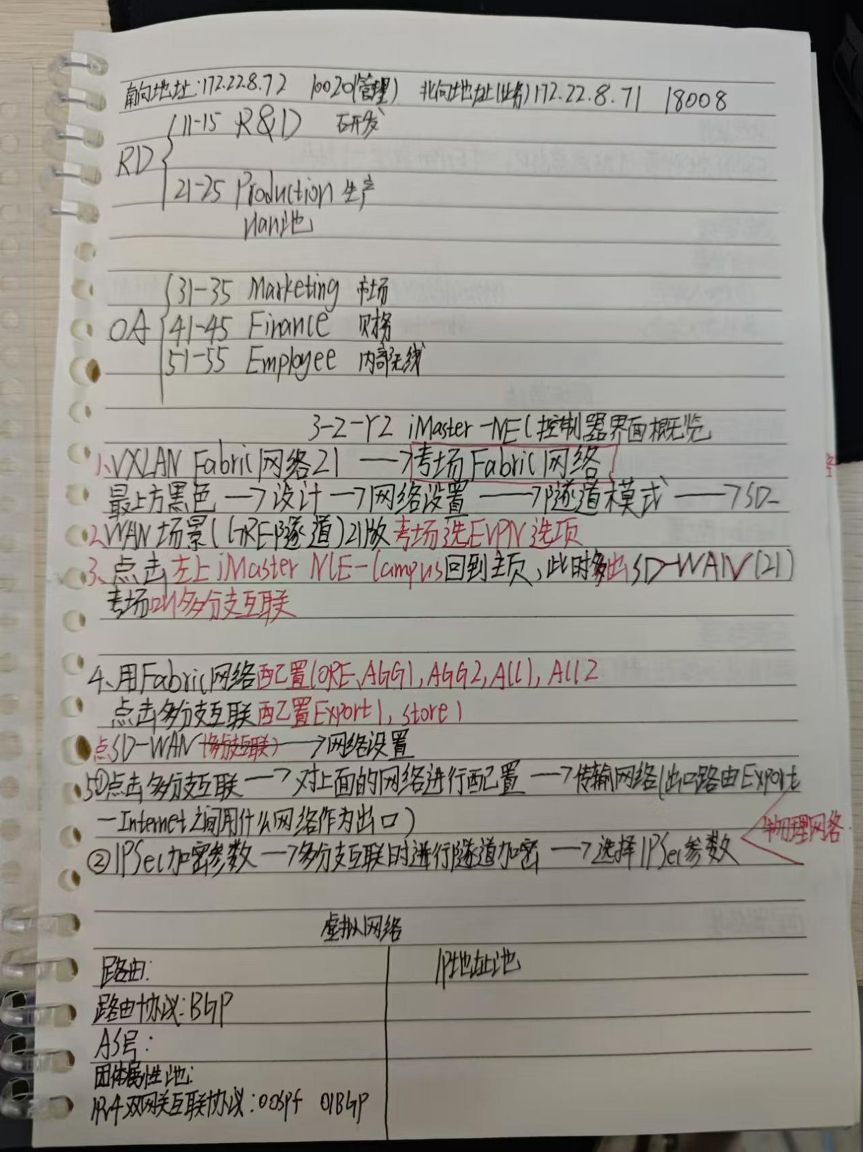 南向地址:172.22.8.72 10020(管理) 北向地址(业务)172.22.8.71 18008
RD
11-15 R&D 研发
21-25 Production 生产
OA
31-35 Marketing 市场
41-45 Finance 财务
51-55 Employee 内部无线
3-2-Y2 iMaster-NEC控制器界面概览
1、VXLAN Fabric网络21 →考场Fabric网络
最上方黑色→设计→网络设置→隧道模式→SD-
2、WAN场景(GRE隧道)21版 考场选EVPN选项
3、点击左上iMaster NCE-Campus回到主页,此时多出SD-WAN(21)
考场叫多分支互联
4、用Fabric网络配置CORE、AGG1,AGG2,ACC1,ACC2
点击多分支互联配置Export1,store1
点SD-WAN(多分支互联)→网络设置
5①点击多分支互联→对上面的网络进行配置→传输网络(出口路由Export
-Internet之间用什么网络作为出口)
物理网络
②IPSec加密参数→多分支互联时进行隧道加密→选择IPSec参数
虚拟网络
路由: IP地址池
路由协议:BGP
AS号:
团体属性池:
IPv4双网关互联协议:OOSPF OIBGP